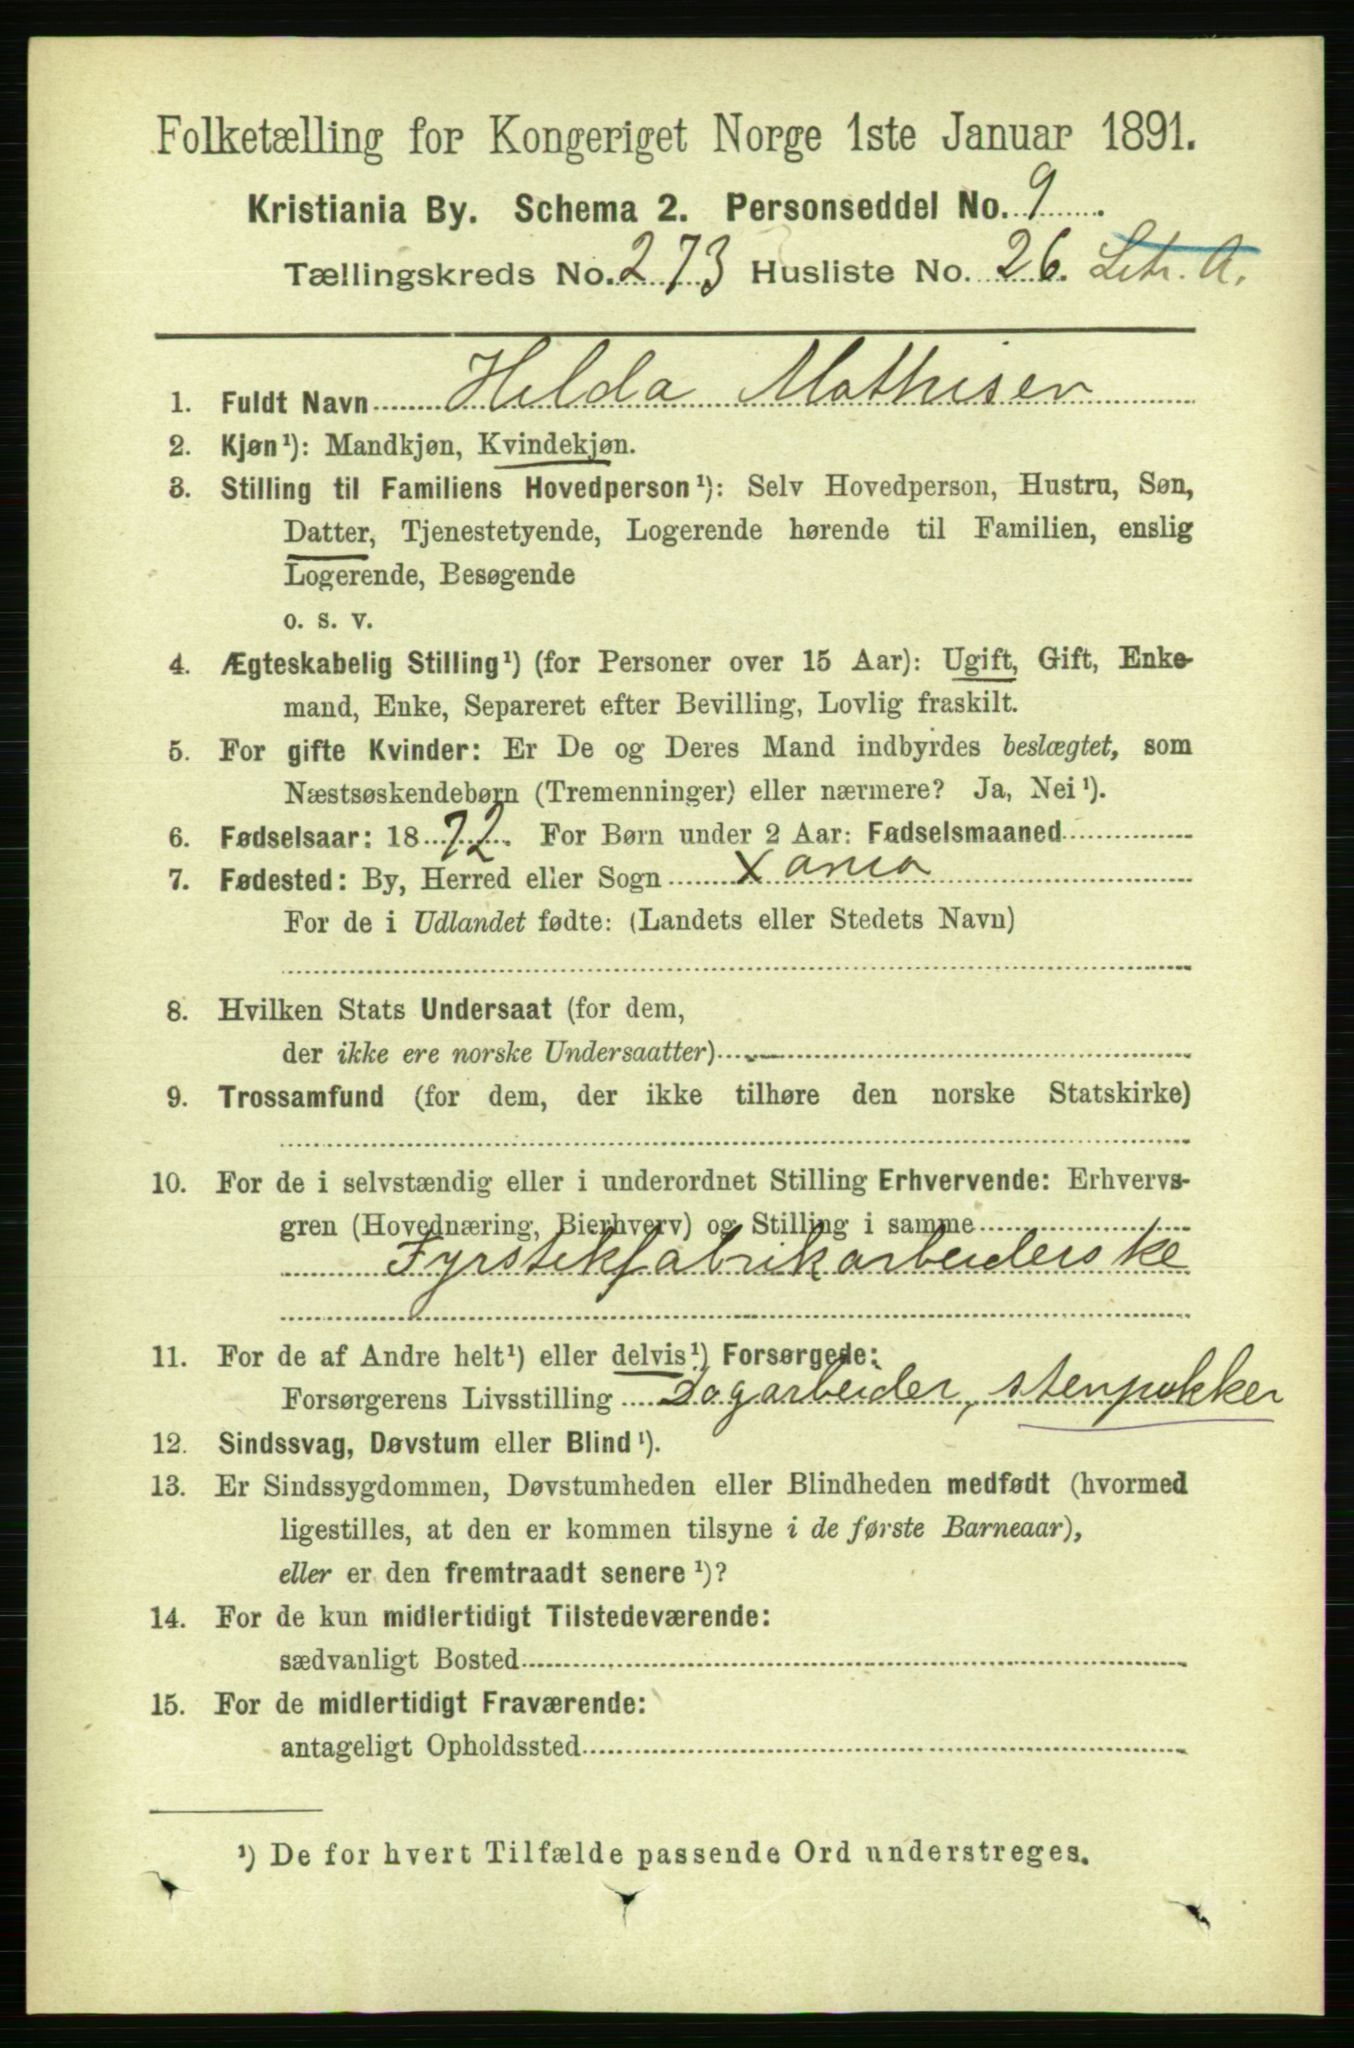 Folketælling for Kongeriget Norge 1ste Januar 1891.
Kristiania By. Schema 2. Personseddel No. 9.
Tællingskreds No. 273 Husliste No. 26. Litr. A.
1. Fuldt Navn Hilda Mathisen
2. Kjøn¹): Mandkjøn, Kvindekjøn.
3. Stilling til Familiens Hovedperson¹): Selv Hovedperson, Hustru, Søn,
Datter, Tjenestetyende, Logerende hørende til Familien, enslig
Logerende, Besøgende
o. s. v.
4. Ægteskabelig Stilling¹) (for Personer over 15 Aar): Ugift, Gift, Enke-
mand, Enke, Separeret efter Bevilling, Lovlig fraskilt.
5. For gifte Kvinder: Er De og Deres Mand indbyrdes beslægtet, som
Næstsøskendebørn (Tremenninger) eller nærmere? Ja, Nei¹).
6. Fødselsaar: 1872. For Børn under 2 Aar: Fødselsmaaned
7. Fødested: By, Herred eller Sogn Xania
For de i Udlandet fødte: (Landets eller Stedets Navn)
8. Hvilken Stats Undersaat (for dem,
der ikke ere norske Undersaatter)
9. Trossamfund (for dem, der ikke tilhøre den norske Statskirke)
10. For de i selvstændig eller i underordnet Stilling Erhvervende: Erhvervs-
gren (Hovednæring, Bierhverv) og Stilling i samme
Fyrstikfabrikarbeiderske
11. For de af Andre helt¹) eller delvis¹) Forsørgede:
Forsørgerens Livsstilling Dagarbeider, stenpukker
12. Sindssvag, Døvstum eller Blind¹).
13. Er Sindssygdommen, Døvstumheden eller Blindheden medfødt (hvormed
ligestilles, at den er kommen tilsyne i de første Barneaar),
eller er den fremtraadt senere¹)?
14. For de kun midlertidigt Tilstedeværende:
sædvanligt Bosted
15. For de midlertidigt Fraværende:
antageligt Opholdssted
¹) De for hvert Tilfælde passende Ord understreges.